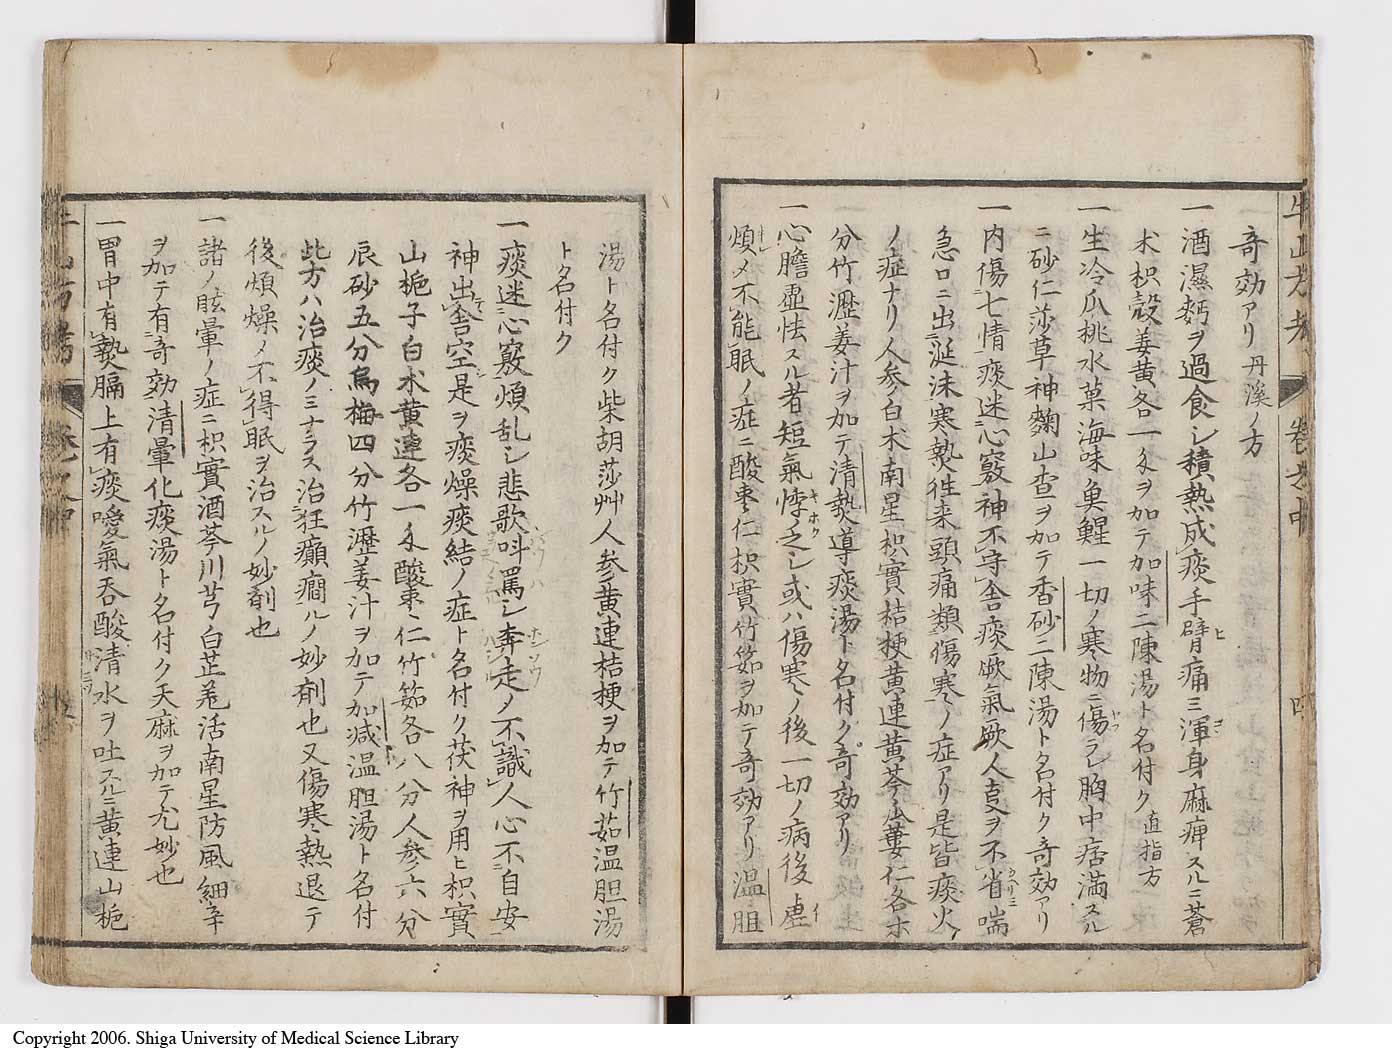 一奇効アリ丹溪ノ方
一酒濕麪ヲ過食シ積熱成痰手臂痛ミ渾身麻痺スルニ蒼
术枳殻姜黄各一匁ヲ加テ加味二陳湯ト名付ク直指方
一生冷瓜桃水菓海味魚鯹一切ノ寒物ニ傷ラレ胸中痞満スル
ニ砂仁莎草神麴山査ヲ加テ香砂二陳湯ト名付ク奇効アリ
一内傷七情痰迷心竅神不守舍痰厥氣厥人事ヲ不省喘
急口ニ出涎沫寒𤍠徃来頭痛類傷寒ノ症アリ是皆痰火
ノ症ナリ人参白术南星枳實桔梗黄連黄芩瓜蔞仁各等
分竹瀝姜汁ヲ加テ清𤍠導痰湯ト名付ク奇効アリ
一心膽虚怯スル者短氣悸乏シ或ハ傷寒ノ後一切ノ病後虚
煩メ不能眠ノ症ニ酸棗仁枳實竹筎ヲ加テ奇効アリ温胆
牛山方考 巻之中
湯ト名付ク柴胡莎艸人参黄連桔梗ヲ加テ竹茹温胆湯
ト名付ク
一痰迷心竅煩乱シ悲歌呌罵シ奔走メ不識人心不自安
神出舍空是ヲ痰燥痰結ノ症ト名付ク茯神ヲ用ヒ枳實
山梔子白术黄連各一匁酸棗仁竹筎各八分人参六分
辰砂五分烏梅四分竹瀝姜汁ヲ加テ加減温胆湯ト名付
此方ハ治痰ノミナラス治狂癲癇ルノ妙剤也又傷寒熱退テ
後煩燥メ不得眠ヲ治スルノ妙剤也
一諸ノ眩暈ノ症ニ枳實酒芩川芎白芷羌活南星防風細辛
ヲ加テ有奇効清暈化痰湯ト名付ク天麻ヲ加テ尤妙也
一胃中有𤍠膈上有痰噯氣呑酸清水ヲ吐スルニ黄連山梔